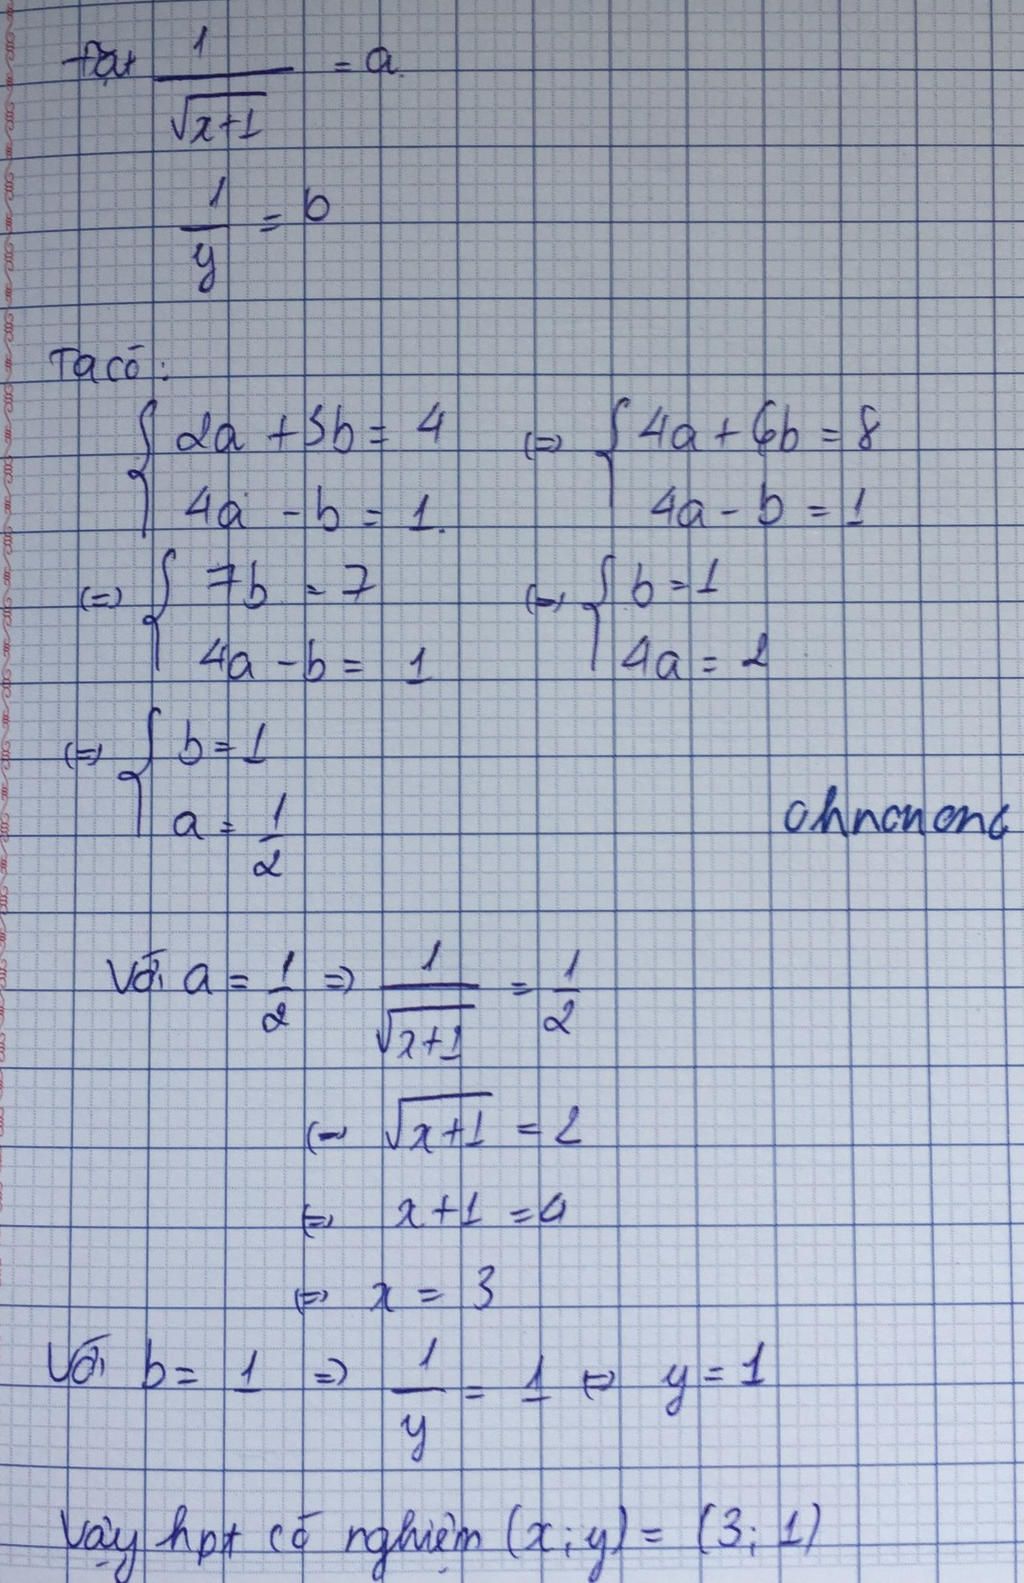 Đặt 1/√(x+1) = a.
1/y = b
Ta có:
{ 2a + 3b = 4 (=) { 4a + 6b = 8
4a - b = 1. 4a - b = 1
(=) { 7b = 7 (=) { b = 1
4a - b = 1 4a = 2
(=) { b = 1
a = 1/2
Với a = 1/2 => 1/√(x+1) = 1/2
(=) √(x+1) = 2
(=) x + 1 = 4
(=) x = 3
Với b = 1 => 1/y = 1 (=) y = 1
Vậy hpt có nghiệm (x; y) = (3; 1)